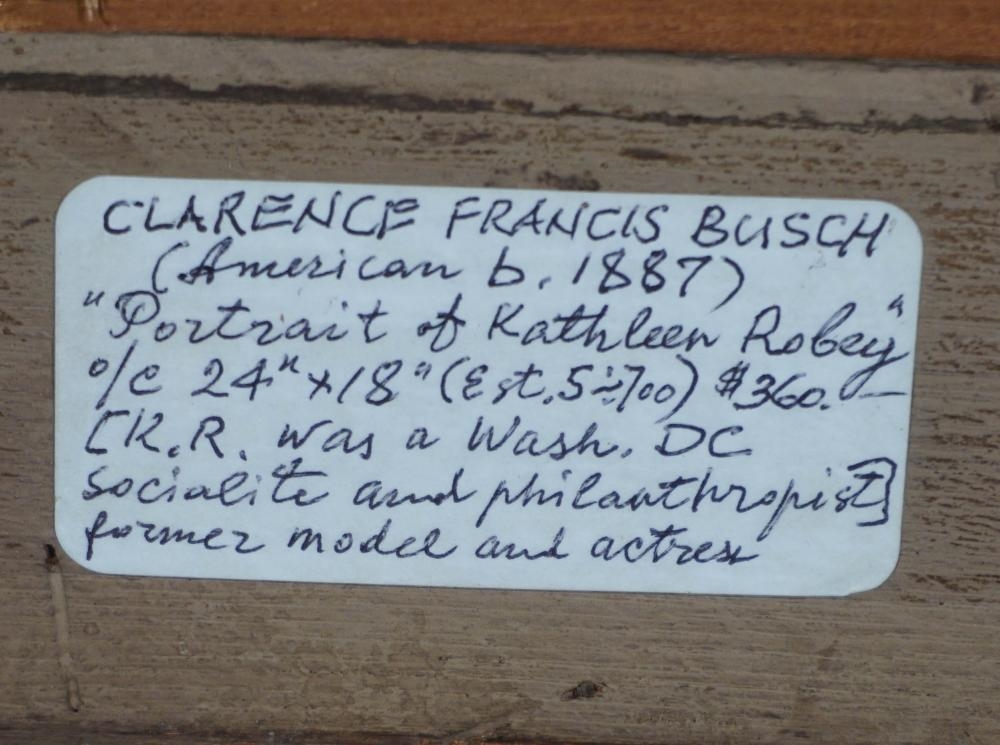 CLARENCE FRANCIS BUSCH
(American b. 1887)
"Portrait of Kathleen Robey"
o/c 24" x 18" (Est. 5-700) $360.—
[K.R. was a Wash. DC
socialite and philanthropist]
former model and actress